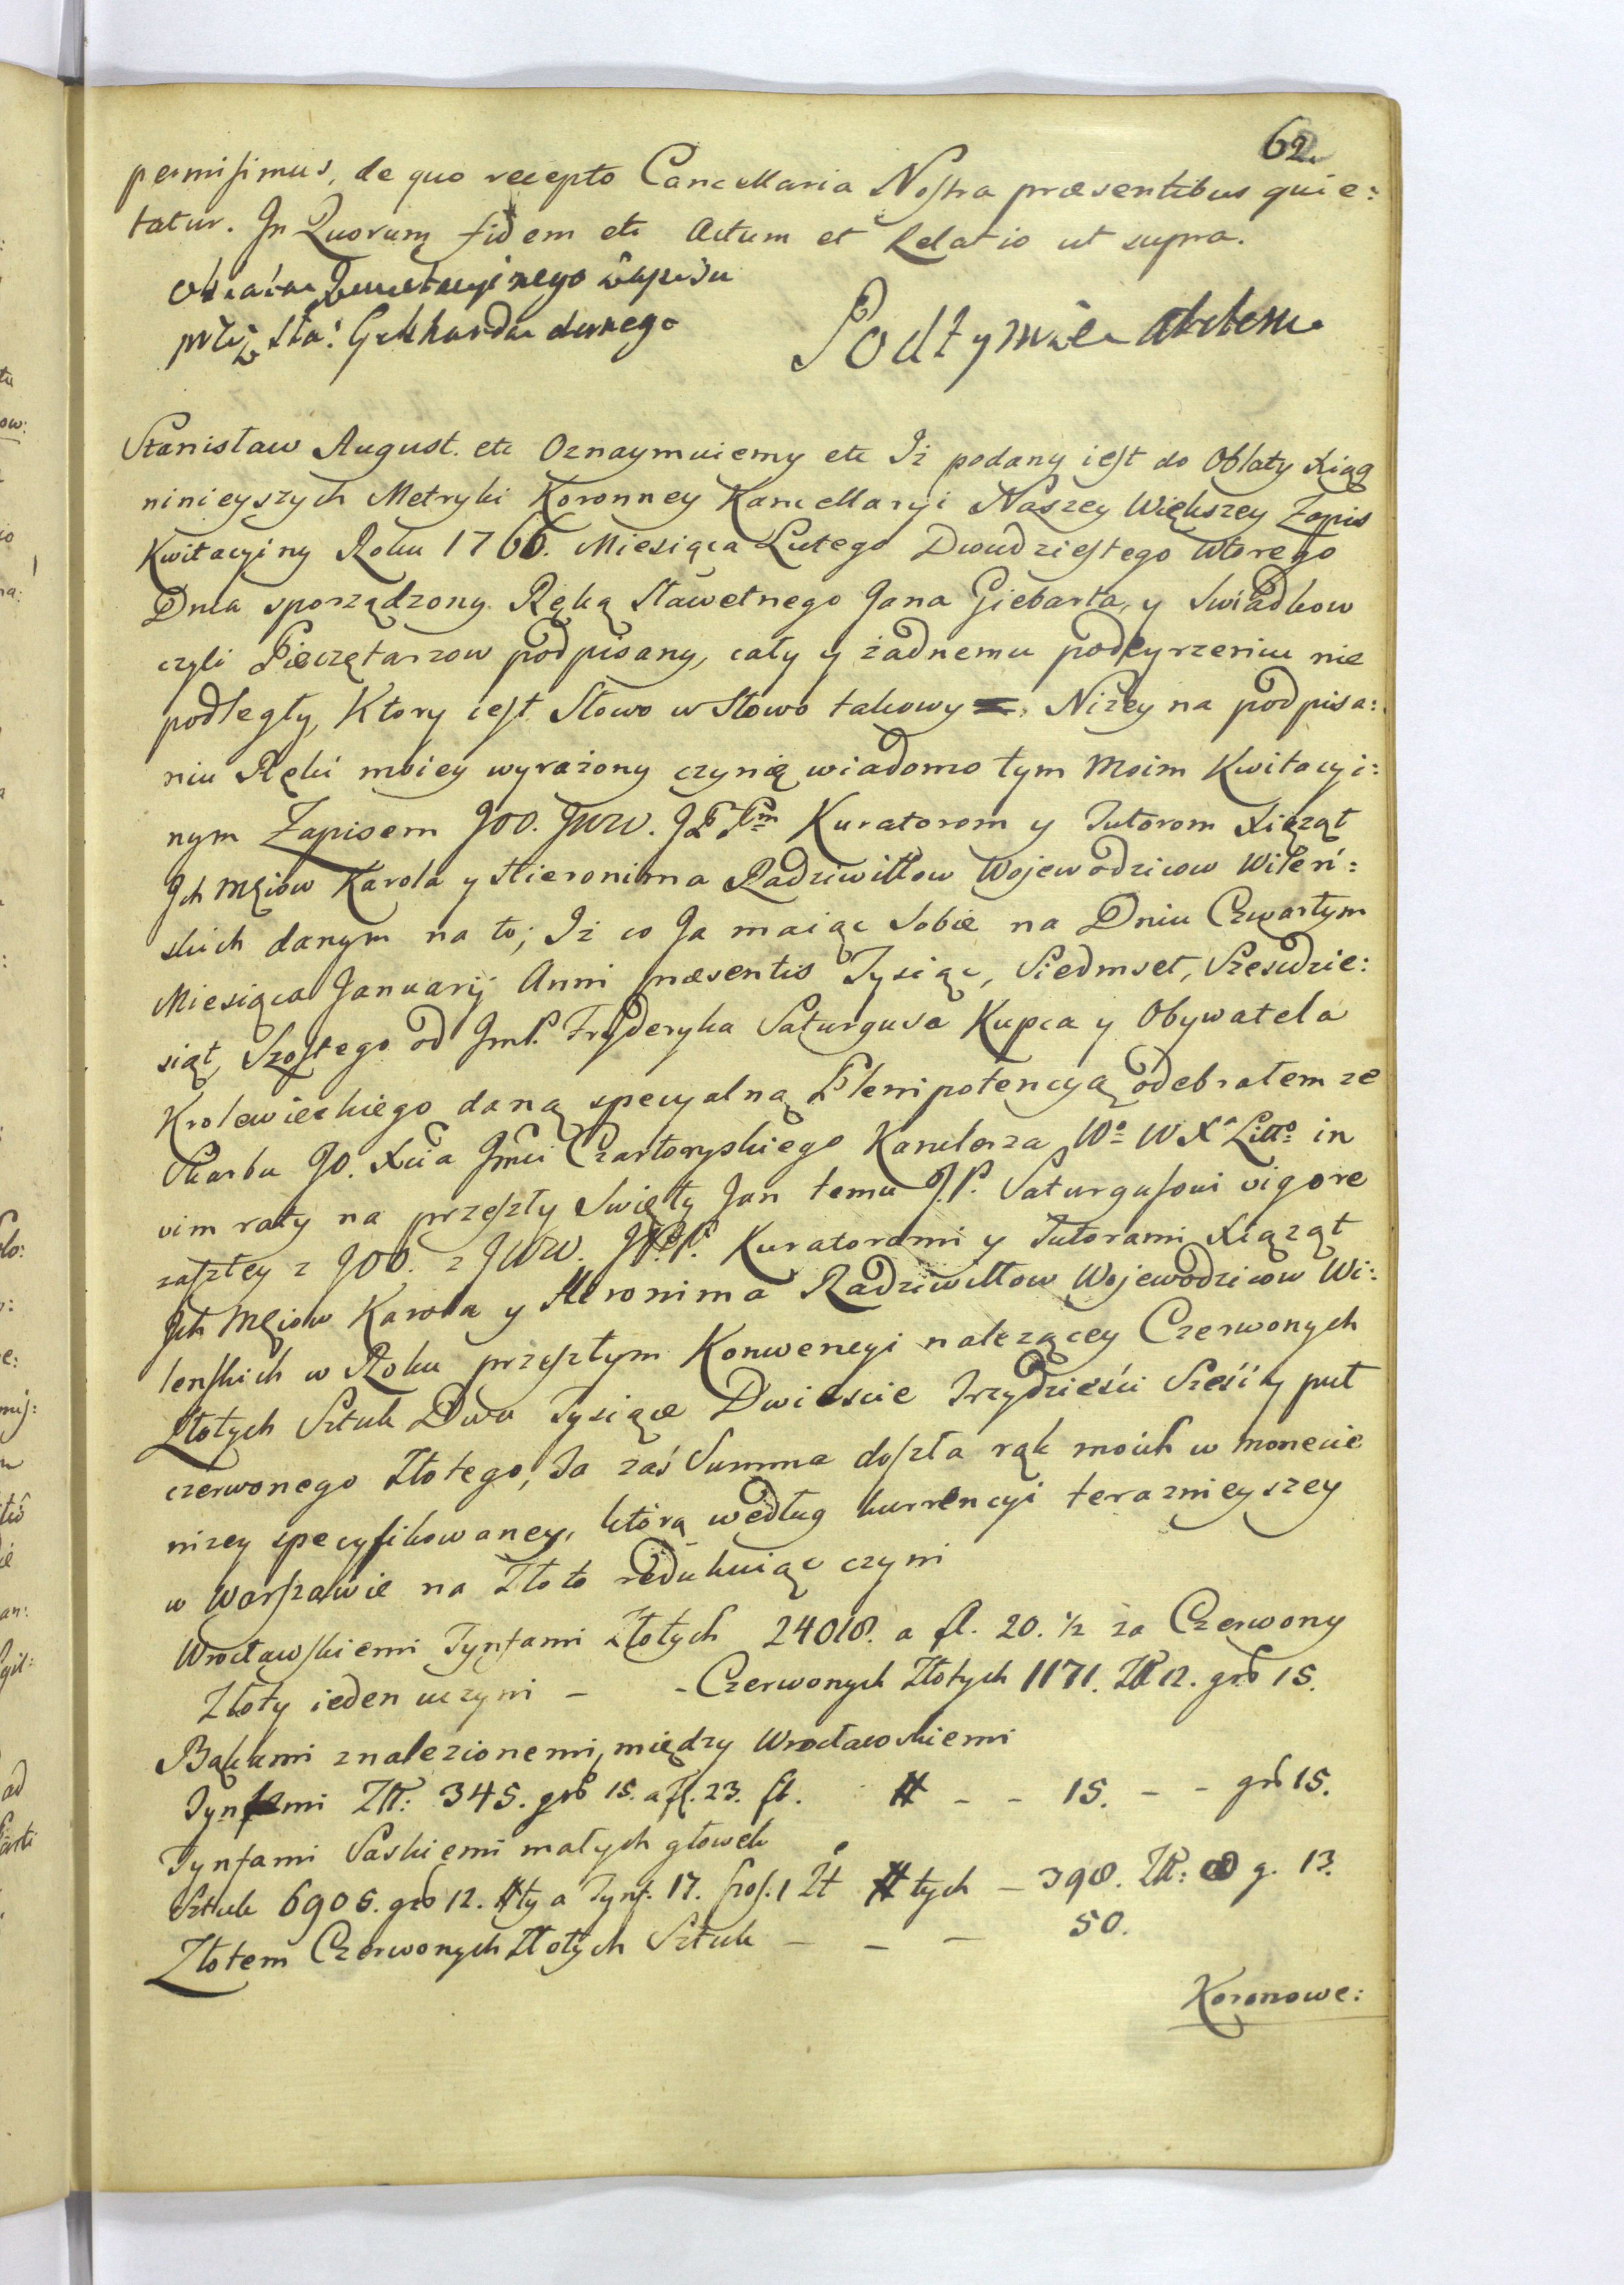 62.
permisimus, de quo recepto Cancellaria Nostra præsentibus quie:
tatur. In Quorum fidem etc Actum et Relatio ut supra.
Oblata Kwietacyinego Zapisu
przez Sła: Gebharda danego
Podług mie
Stanisław August. etc Oznaymuiemy etc Iż podany iest do Oblaty Xiąg
ninieyszych Metryki Koronney Kancellaryi Naszey Większey Zapis
Kwitacyiny Roku 1766. Miesiąca Lutego Dwudziestego wtorego
Dnia sporządzony Ręką Sławetnego Jana Giebarta, y Swiadkow
czyli Pieczętarzow podpisany, cały y żadnemu podeyrzeniu nie
podległy, Ktory iest Słowo w Słowo takowy =, Niżey na podpisa:
niu Ręki moiey wyrażony czynię wiadomo tym Moim Kwitacyi:
nym Zapisem JOO. JWW. JPPm Kuratorom y Tutorom Xiążąt
Ich Mciow Karola y Hieronima Radziwiłłow Wojewodzicow Wileń:
skich danym na to; Iż co Ja maiąc Sobie na Dniu Czwartym
Miesiąca Januarij Anni præsentis Tysiąc, Siedmset, Szescdzie:
siąt, Szostego od JmP. Fryderyka Saturgusa Kupca y Obywatela
Krolewieckiego daną specyalną Plenipotencyą odebrałem ze
Skarbu JO. Xcia Jmci Czartoryskiego Kanclerza Wo W Xa Litto in
vim raty na przeszły Swięty Jan temu J.P. Saturgusowi vigore
zaszłey z JOO. z JWW. JPP. Kuratorami y Tutorami Xiążąt
Ich Mciow Karola y Hieronima Radziwiłłow Wojewodzicow Wi:
lenskich w Roku przeszłym Konwencyi należącey Czerwonych
Złotych Sztuk Dwa Tysiące Dwiescie Trzydzieści Sześć y puł
czerwonego Złotego, Ta zaś Summa doszła rąk moich w monecie
niżey specyfikowaney, którą według kurrencyi terazniejszey
w Warszawie na Złoto redukuiąc czyni
Wrocławskiemi Tynfami Złotych 24018. a fl. 20. 1/2 za Czerwony
Złoty ieden uczyni - - Czerwonych Złotych 1171. Złł 12. gro 15.
Bąkami znalezionemi, między Wrocławskiemi
Tynfami Złł: 345. gro 15. a fl. 23. # - - 15. - - gro 15.
Tynfami Saskiemi małych głowek
Sztuk 6905. gro 12. #ty a Tynf. 17. Szos. 1 Zł #tych - 398. Złł: g. 13.
Złotem Czerwonych Złotych Sztuk - - - 50.
Koronowe: